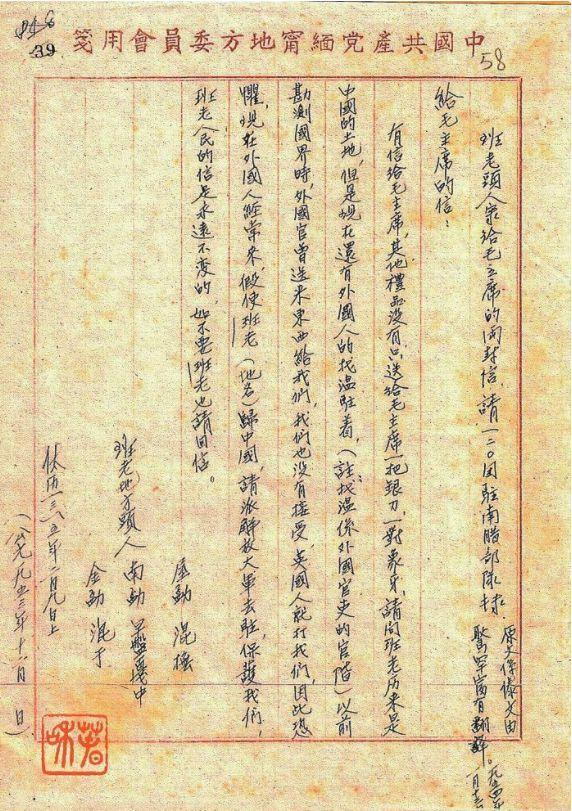 中國共產党緬甯地方委員會用箋
39
58
班老頭人衆給毛主席的兩封信，請一二〇团駐南腊部隊持
原文係傣文由
給毛主席的信：
有信給毛主席，其他禮品没有只送給毛主席一把銀刀，一對象牙，請問班老历來是
中國的土地，但是現在還有外國人的找温駐着，（註找温係外國官吏的官階）以前
勘測國界時，外國官曾送米東西給我們，我們也没有接受，英國人就打我們，因此恐
懼，現在外國人經常來，假使班老（地名）歸中國，請派解放大軍去駐，保護我們，
班老人民的信是永遠不变的，如不要班老也請回信。
班老地方頭人
一三八五年一月九日上
（公元一九五三年十一月 日）